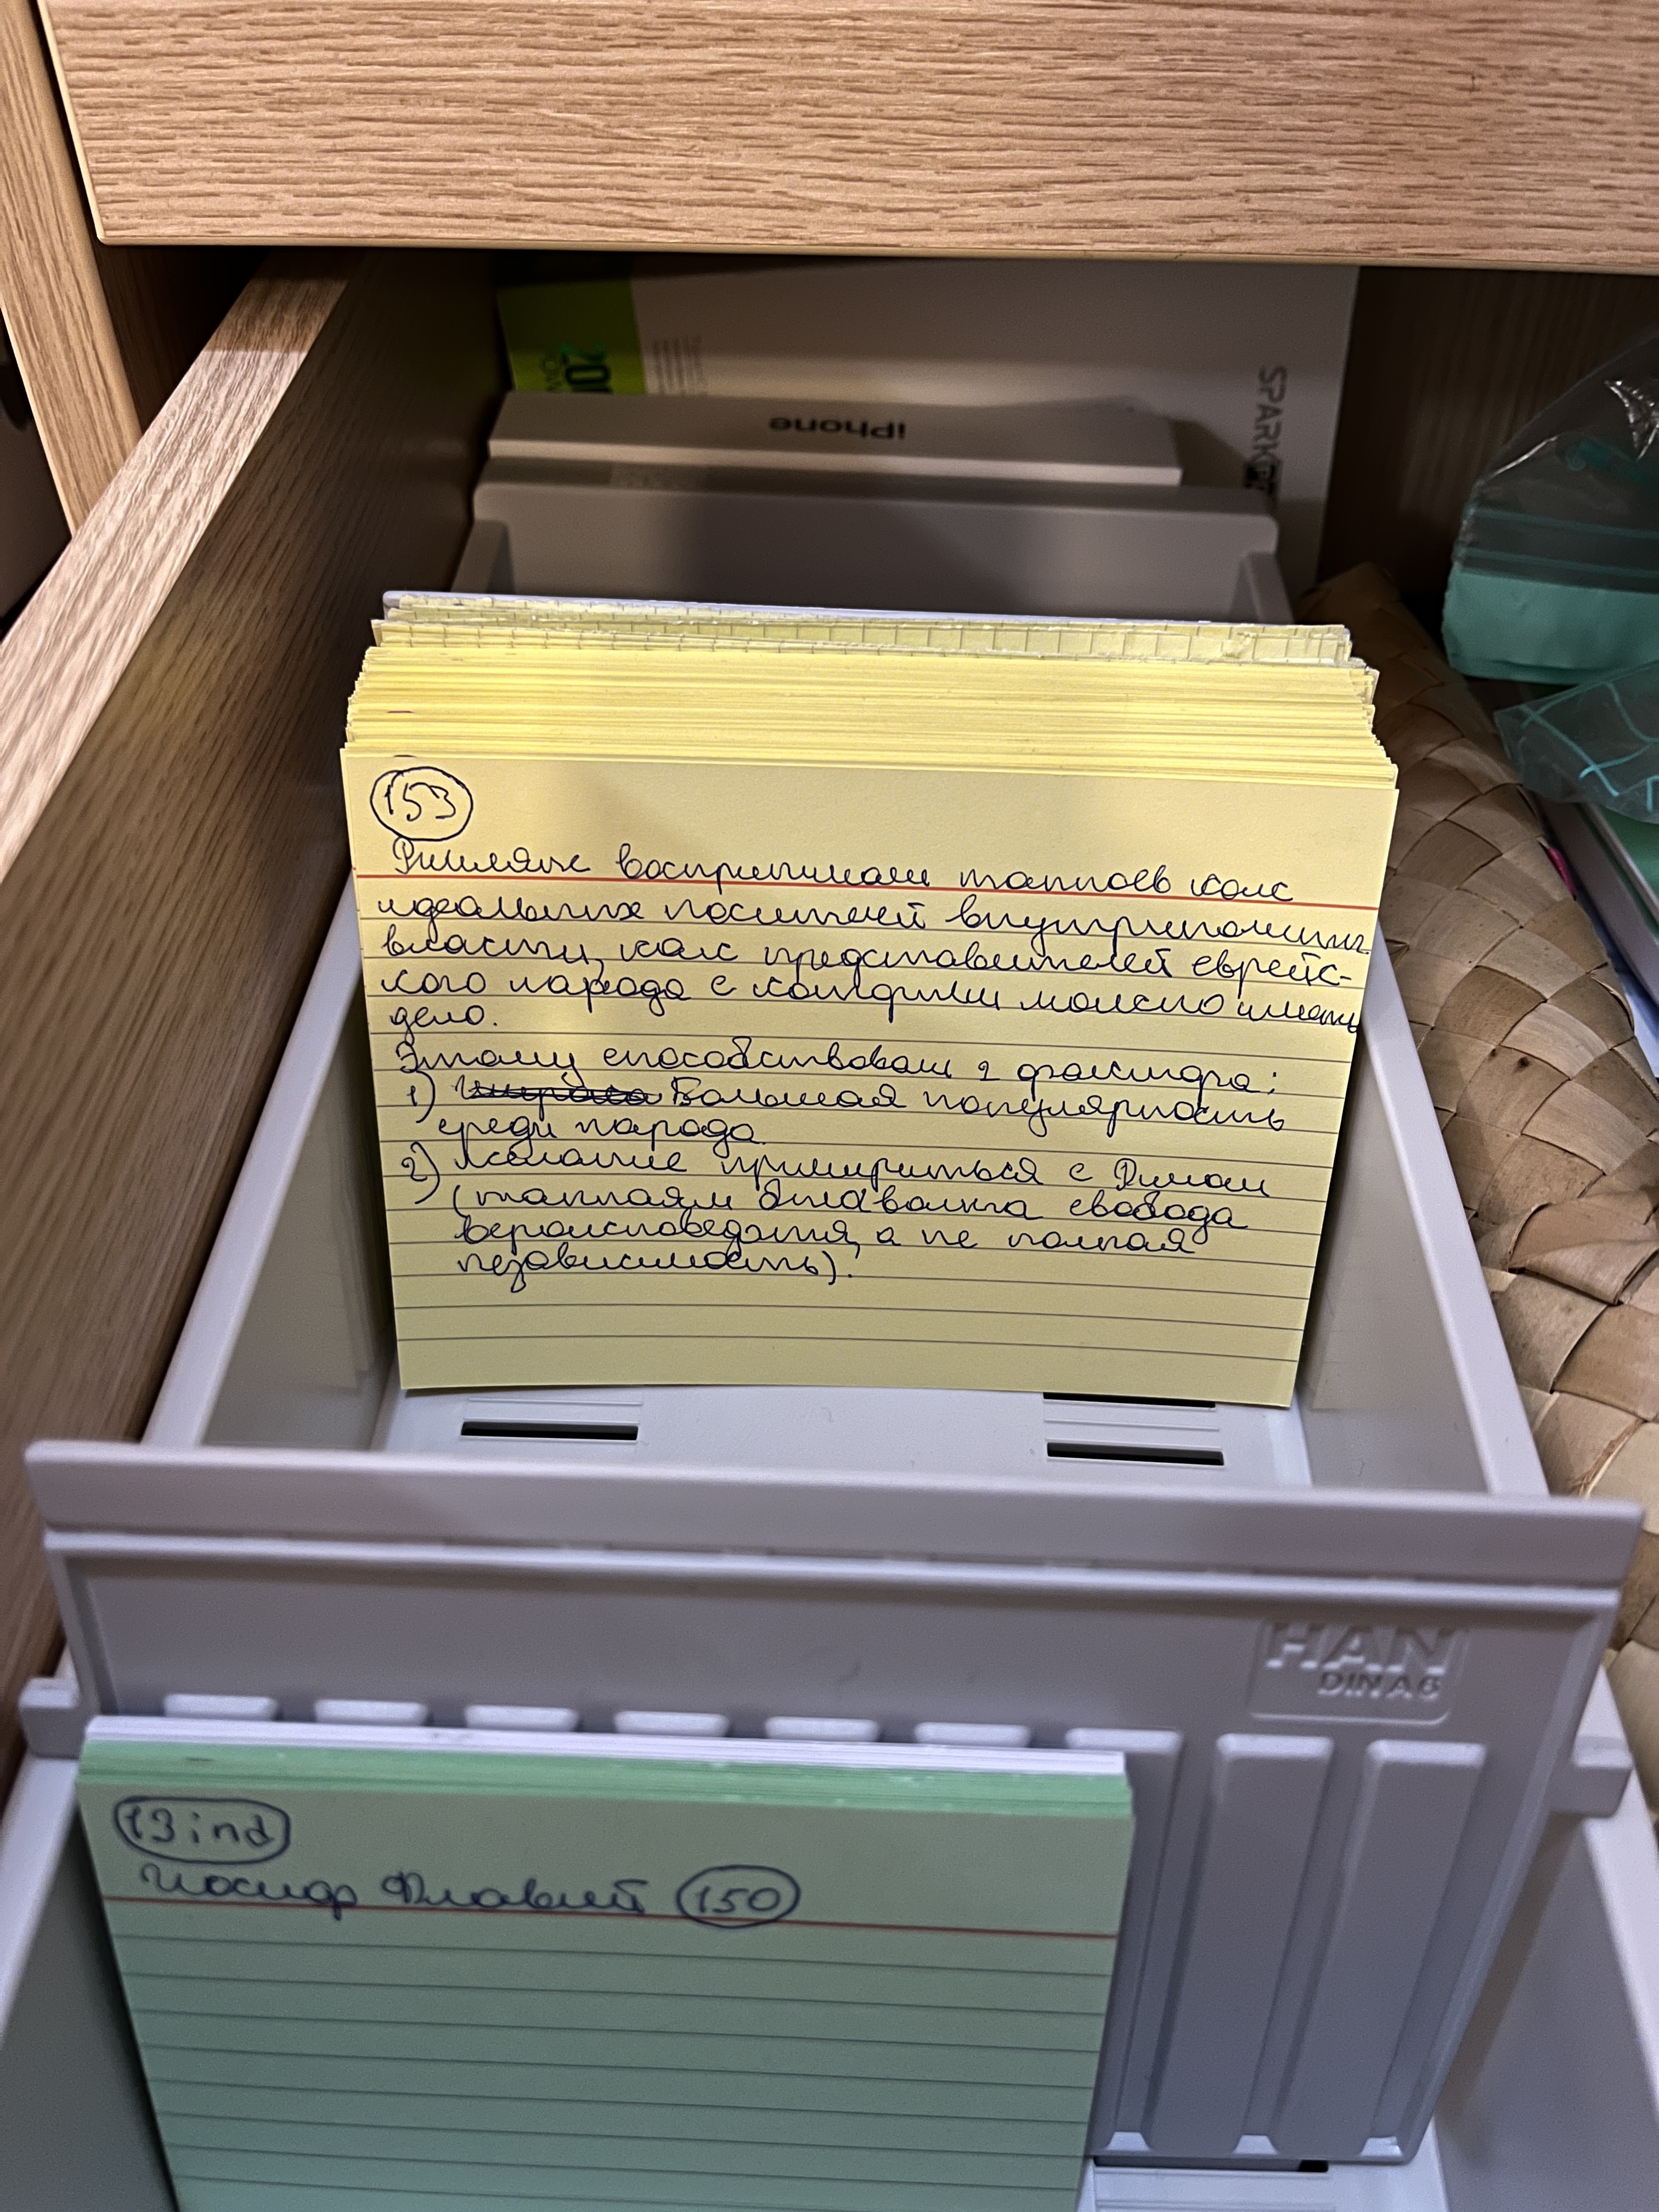 iPhone
153
Римляне воспринимали таннаев как
идеальных носителей внутриполит.
власти, как представителей еврейс-
кого народа с которыми можно иметь
дело.
Этому способствовали 2 фактора:
1) Большая популярность
среди народа
2) Желание примириться с Римом
(таннаям была важна свобода
вероисповедания, а не полная
независимость).
HAN
DIN A6
13 ind
Иосиф Флавий 150